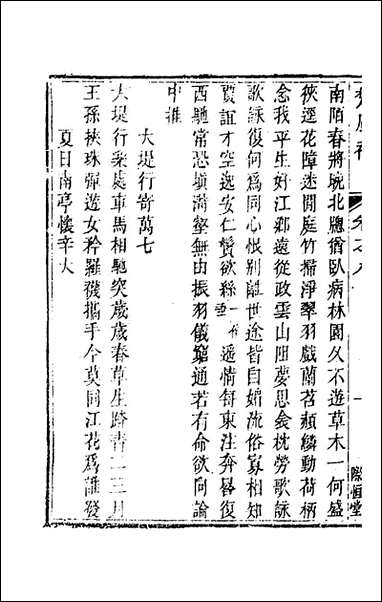 南陌春將晚北牕猶臥病林園久不遊草木一何盛
狹逕花障迷閒庭竹掃淨翠羽戲蘭苕赬鱗動荷柄
念我平生好江鄉遠從政雲山阻夢思衾枕勞歌詠
歌詠復何爲同心恨別離世途皆自媚流俗寡相知
賈誼才空逸安仁鬢欲絲一作遥情每東注奔晷復
西馳常恐塡溝壑無由振羽儀窮通若有命欲向論
中推
大堤行寄萬七
大堤行樂處車馬相馳突歲歲春草生踏青二三月
王孫挾珠彈遊女矜羅襪攜手今莫同江花爲誰發
夏日南亭懷辛大